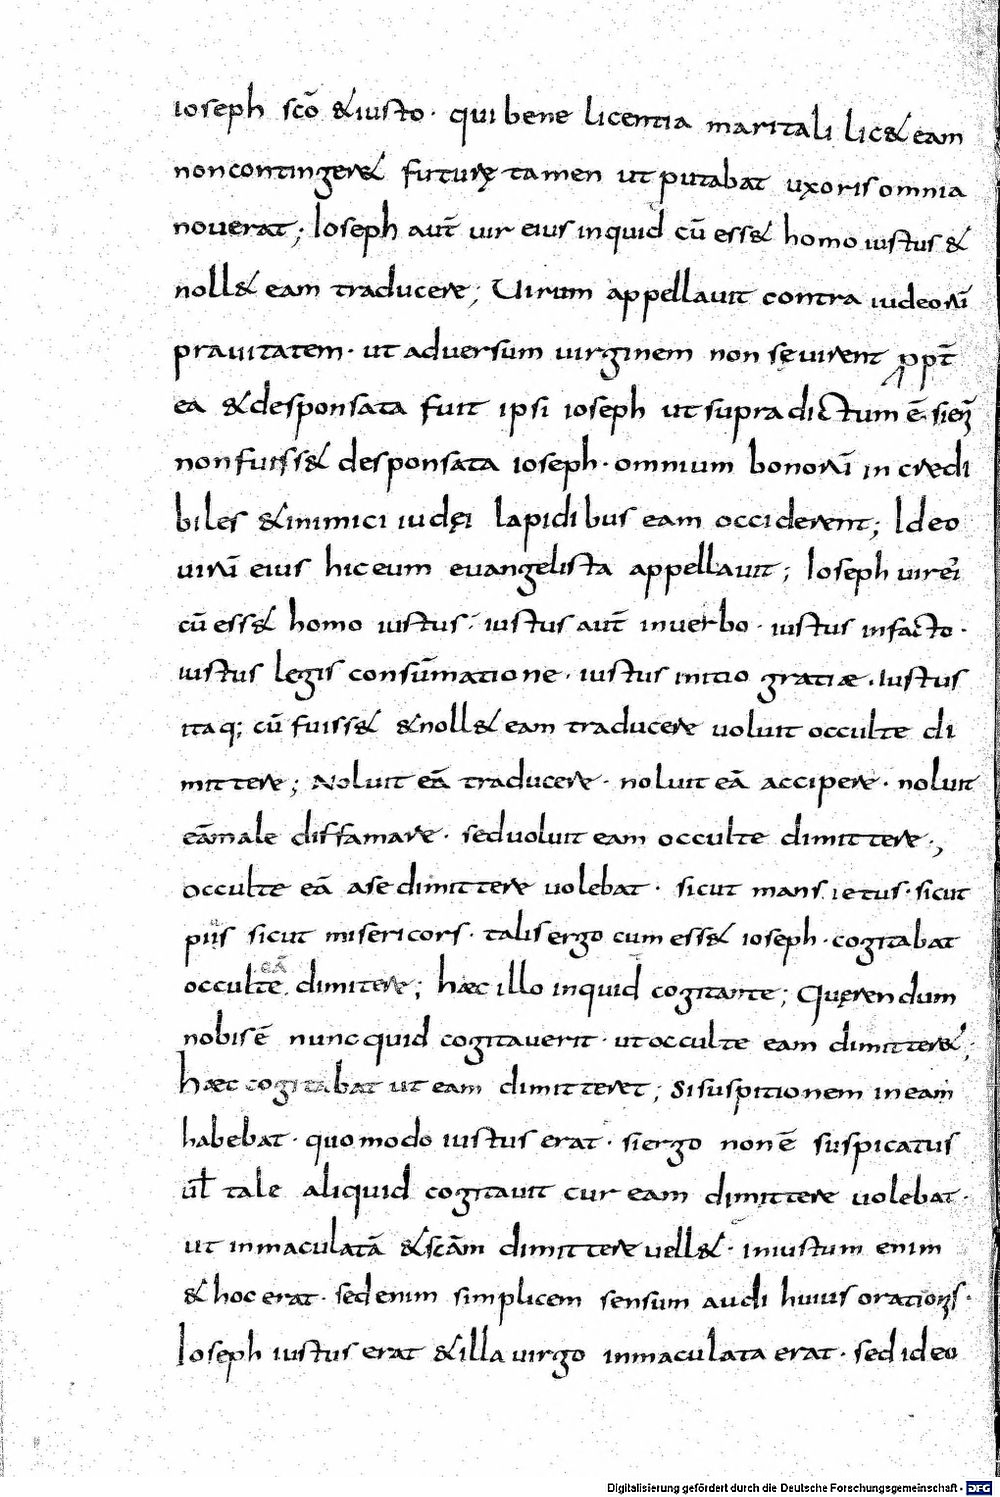 ioseph scō &iusto· qui bene licentia maritali lic& eam
noncontinger& futurę tamen ut putabat uxoris omnia
nouerat; Ioseph aut̄ uir eius inquid cū ess& homo iustus &
noll& eam traducere; Uirum appellauit contra iudeorū
prauitatem· ut aduersum uirginem non sęuirent ꝓpt̄
ea &desponsata fuit ipsi ioseph ut supra dictum ē· si eñ
non fuiss& desponsata ioseph· omnium bonorū in credi
biles &inimici iudęi lapidibus eam occiderent; Ideo
uirū eius hic eum euangelista appellauit; Ioseph uir ei
cū ess& homo iustus· iustus aut̄ inuerbo· iustus infacto·
iustus legis consūmatione· iustus initio gratiæ· iustus
itaq; cū fuiss& &noll& eam traducere uoluit occulte di
mittere; Noluit eā traducere· noluit eā accipere· noluit
eāmale diffamare· seduoluit eam occulte dimittere·,
occulte eā ase dimittere uolebat· sicut mansuetus· sicut
pius sicut misericors· talis ergo cum ess& ioseph· cogitabat
occulte eā dimitere; hæc illo inquid cogitante; Quęrendum
nobis ē nuncquid cogitauerit· ut occulte eam dimitter&;
hæc cogitabat ut eam dimitteret; Sisuspitionem ineam
habebat· quomodo iustus erat· siergo non ē suspicatus
ul̄ tale aliquid cogitauit cur eam dimittere uolebat·
ut inmaculatā &scām dimittere uell&· iniustum enim
& hoc erat· sed enim simplicem sensum audi huius orationis·
Ioseph iustus erat &illa uirgo inmaculata erat· sed ideo
Digitalisierung gefördert durch die Deutsche Forschungsgemeinschaft - DFG